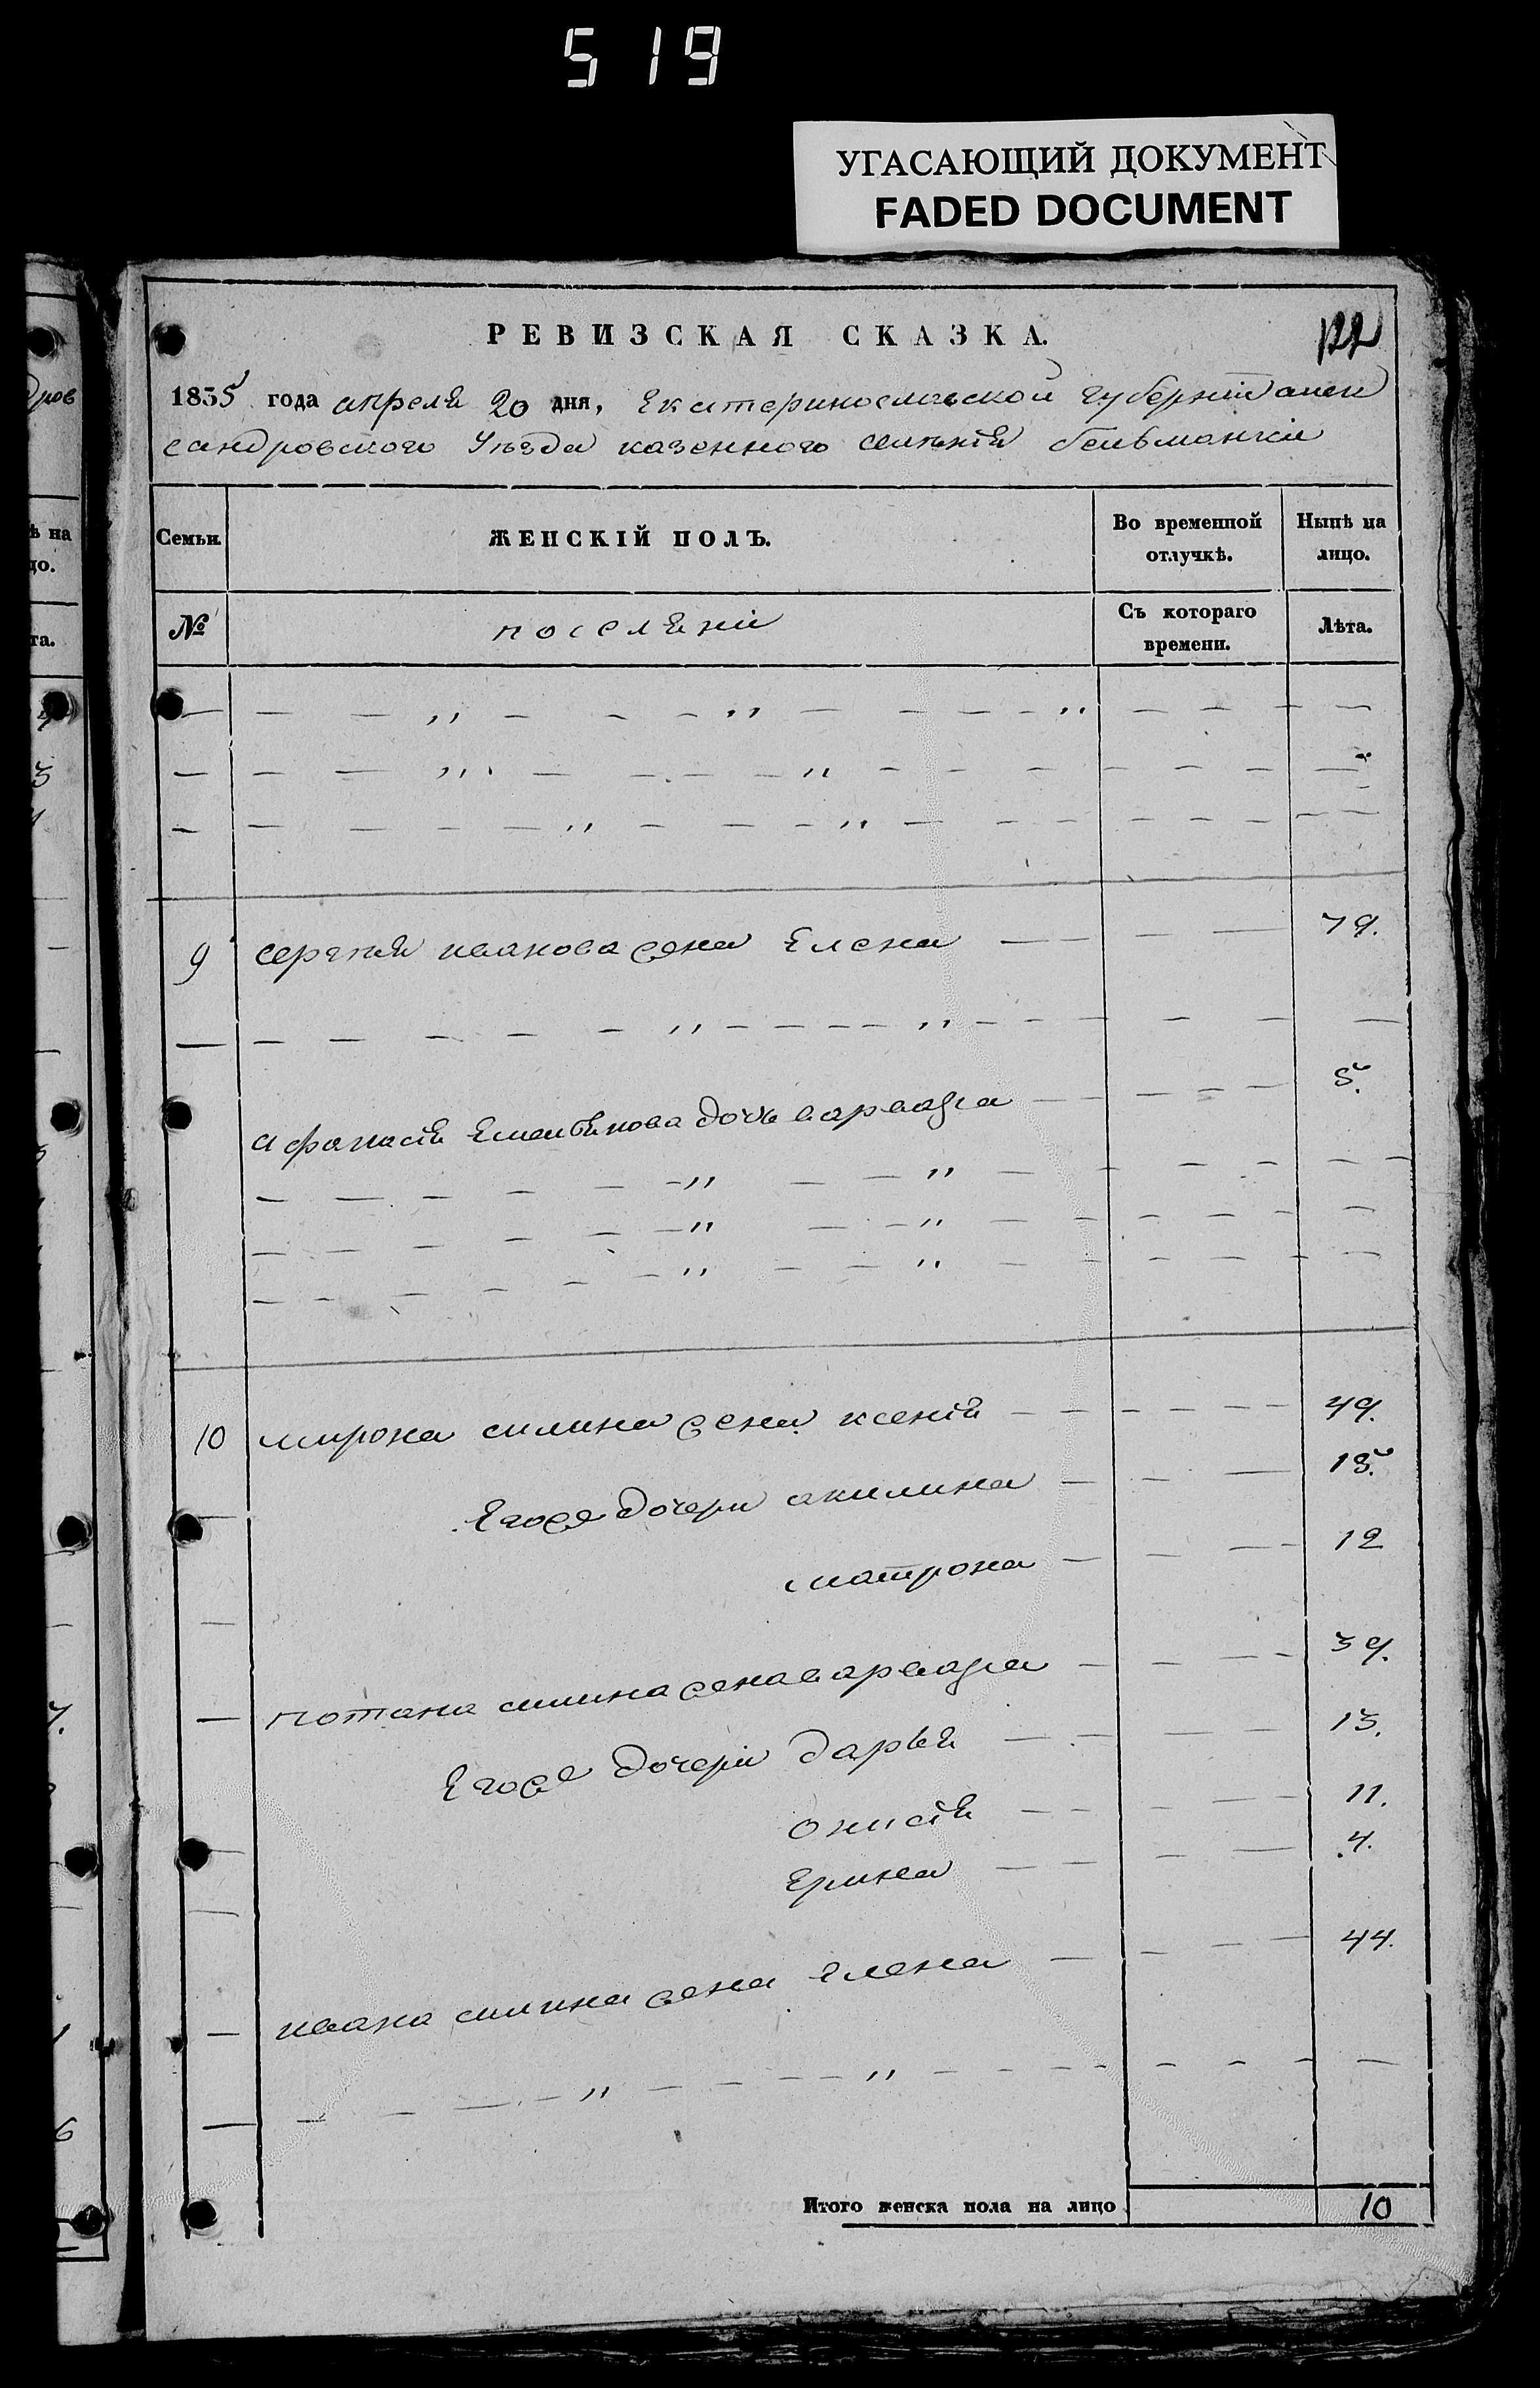 519
УГАСАЮЩИЙ ДОКУМЕНТ
FADED DOCUMENT
РЕВИЗСКАЯ СКАЗКА.
122
1835 года апреля 20 дня, Екатеринославской губернии алек
сандровского Уезда казенного селения бельманки
Семьи. ЖЕНСКІЙ ПОЛЪ. Во временной отлучкѣ. Нынѣ на лицо.
№ поселяни Съ котораго времени. Лѣта.
— — — " — — — " — — — — " — — — — —
— — — " — — — — " — — — — — — —
— — — — — " — — — " — — — — — — — —
9 Сергея иванова жена Елена — — — — 79.
— — — — — — " — — — — " — — — — — —
Афанасия Емельянова дочь варвара — — — — 5.
— — — — — — " — — " — — — — — —
— — — — — — " — — " — — — — — —
— — — — — — " — — " — — — — — —
10 мирона силина жена ксения — — — — — 49.
— Егоже дочери акилина — — — 15.
— матрона — — — 12
— потапа силина жена варвара — — — — 39.
Егоже дочери дарья — — — — 13.
— онисия — — — — 11.
— Ерина — — — — 4.
— ивана силина жена Елена — — — — 44.
— — — — — " — — — — " — — — — — — — —
Итого женска пола на лицо 10